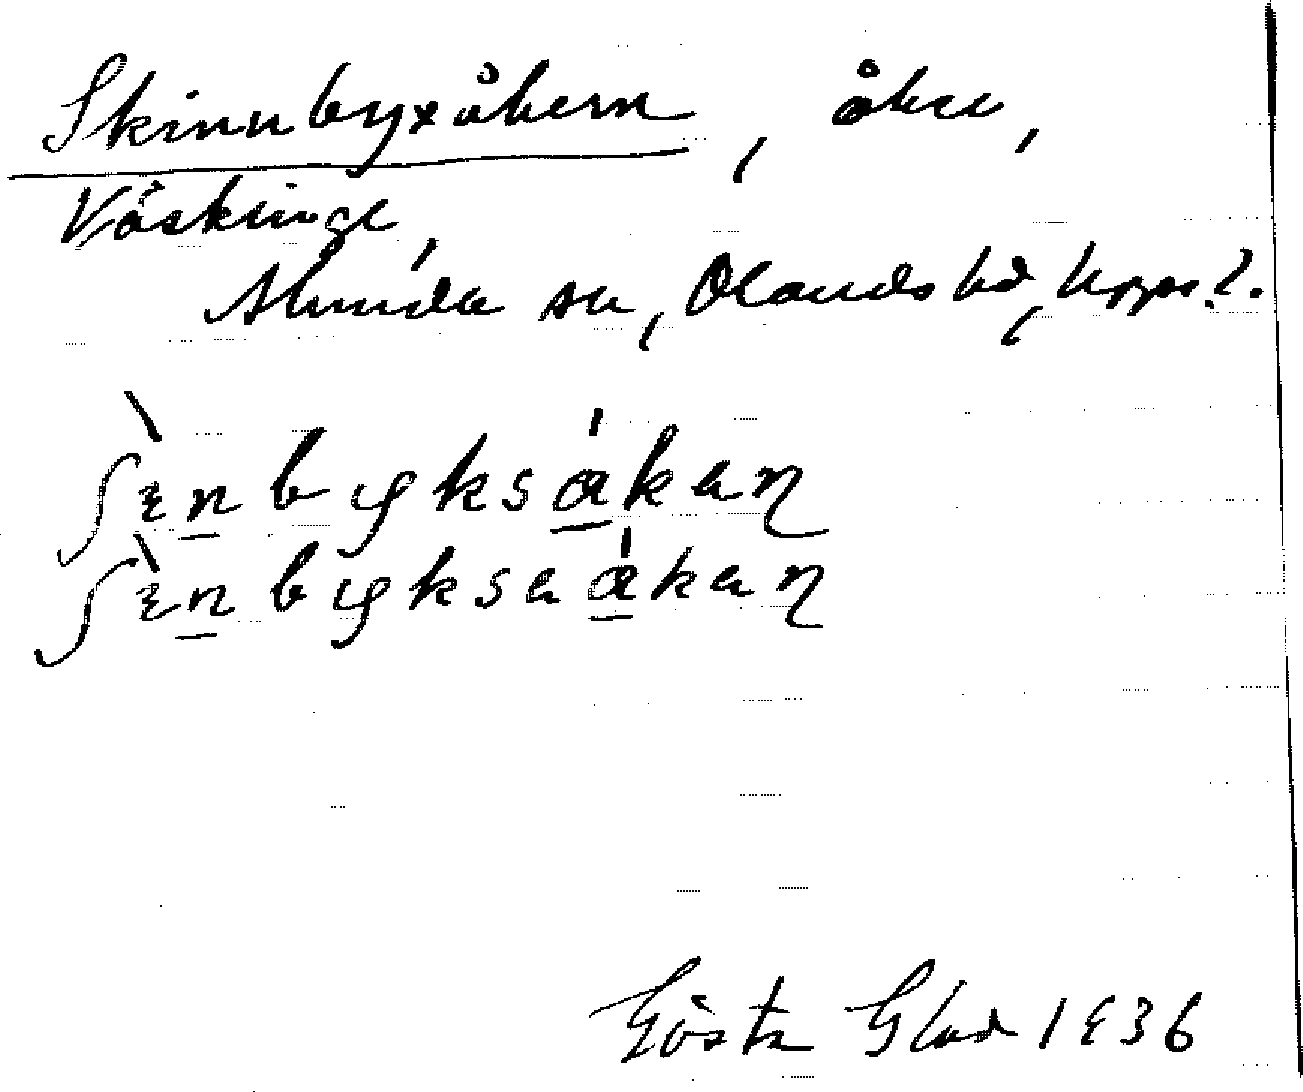 Skinnbyxåkern, åker,
Väskinge,
Alunda sn, Olands hd, Upps. l.
ʃɪ̀n̲byksɑ̲́kaɳ
ʃɪ̀n̲byksaɑ̲́kaɳ
Gösta Glad 1936